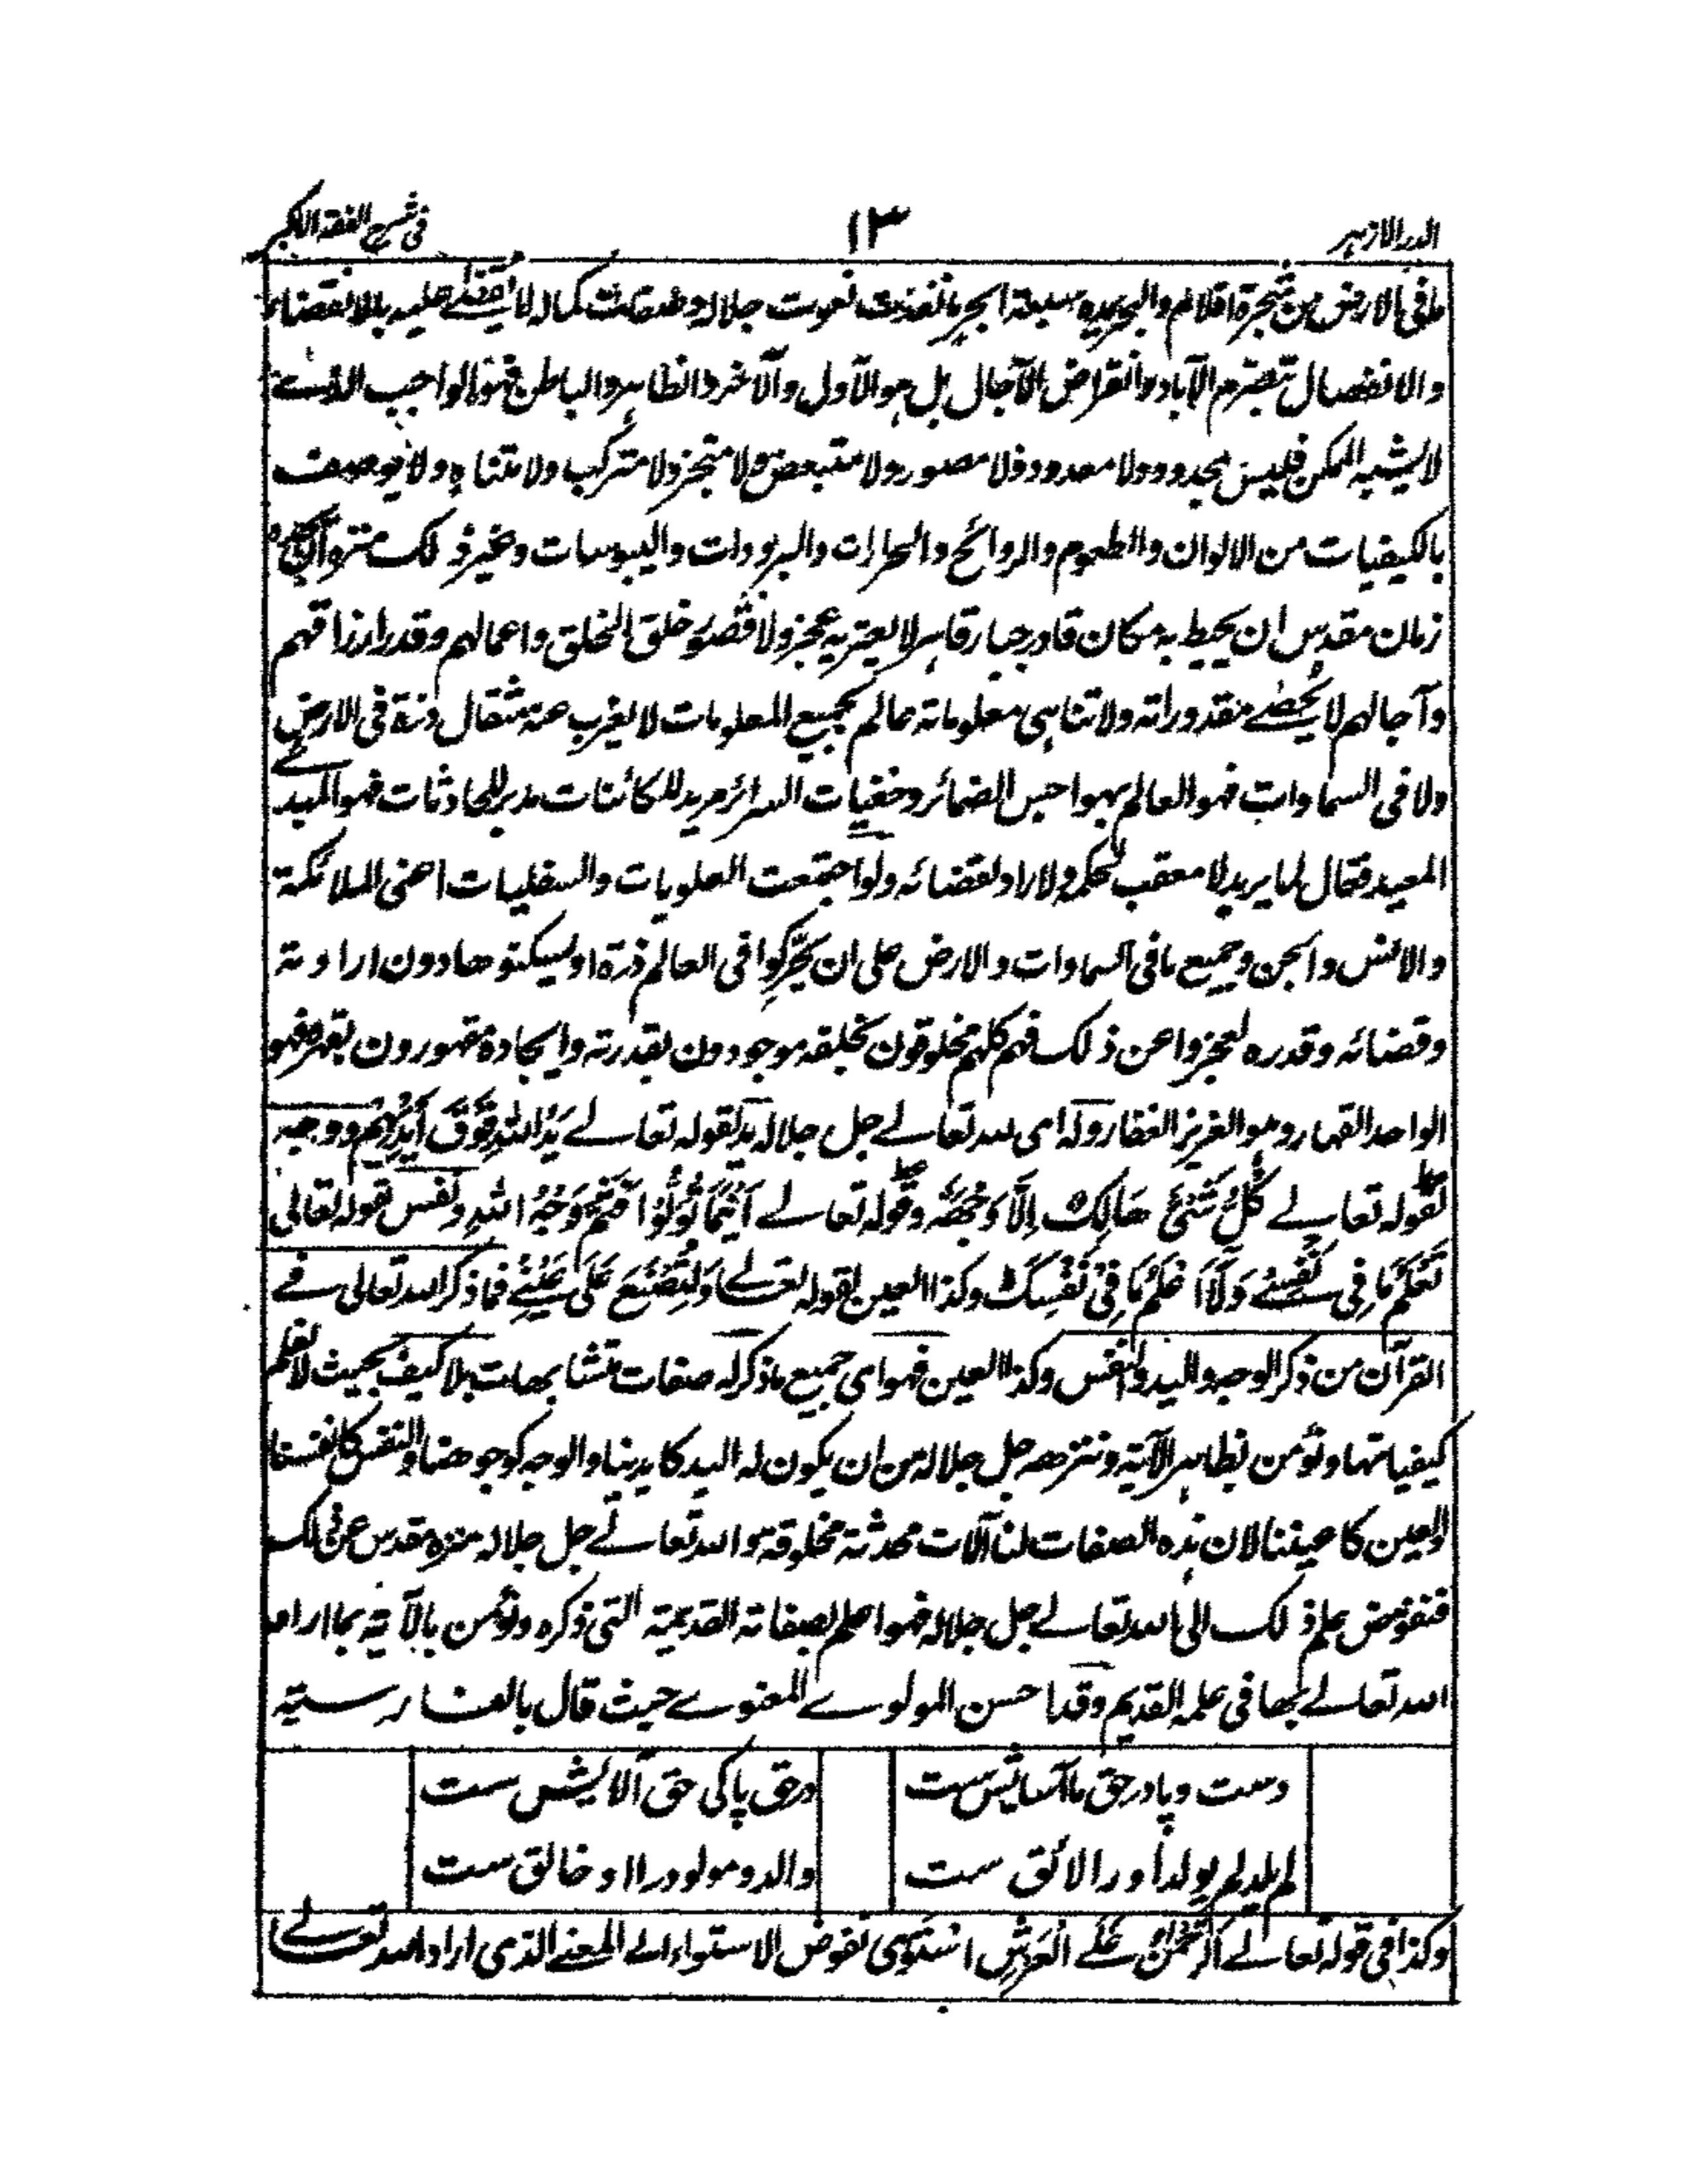 الدر الازهر
١٣
فی شرح الفقه الاکبر
ما فی الارض من شجرة اقلام والبحر یمده سبعة ابحر ما نفدت نعوت جلاله وصفات کماله لا یقضی علیه بالانقضاء
والانفصال تبصرم الآباد وانقراض الآجال بل هو الاول والآخر والظاهر والباطن فهو الواجب الذی
لا یشبه الممکن فلیس بمحدود ولا معدود ولا مصور ولا متبعض ولا متجز ولا مترکب ولا متناه ولا یوصف
بالکیفیات من الالوان والطعوم والروائح والحرارات والبرودات والیبوسات وغیر ذلک منزه
زمان مقدس ان یحیط به مکان قادر جبار قاهر لا یعتریه عجز ولا قصور خلق الخلق واعمالهم وقدر ارزاقهم
وآجالهم لا یحصے مقدوراته ولا تناهی معلوماته عالم بجمیع المعلومات لا یغرب عنه مثقال ذرة فی الارض
ولا فی السماوات فهو العالم بهواجس الضمائر وخفیات السرائر مرید للکائنات مدبر للحادثات فهو المبدء
المعید فعال لما یرید لا معقب لحکمه ولا راد لقضائه ولو اجتمعت العلویات والسفلیات اعنی الملائکة
والانس والجن وجمیع ما فی السماوات والارض علی ان یحرّکوا فی العالم ذرة او یسکنوها دون ارادته
وقضائه وقدره لعجزوا عن ذلک فهم کلهم مخلوقون بخلقه موجودون بقدرته وایجاده مقهورون بقهره فهو
الواحد القهار وهو العزیز الغفار وله ای لله تعالے جل جلاله ید لقوله تعالے یَدُ اللهِ فَوْقَ اَیْدِیْهِم ووجه
لقوله تعالے کُلُّ شَیْءٍ هَالِکٌ اِلَّا وَجْهَهٗ وقوله تعالے اَیْنَمَا تُوَلُّوْا فَثَمَّ وَجْهُ اللهِ ونفس لقوله تعالی
تَعْلَمُ مَا فِی نَفْسِیْ وَلَا اَعْلَمُ مَا فِیْ نَفْسِکَ وکذا العین لقوله تعالے وَلِتُصْنَعَ عَلٰی عَیْنِیْ فما ذکر الله تعالی فے
القرآن من ذکر الوجه والید والنفس وکذا العین فهو ای جمیع ما ذکر له صفات متشابهات بلا کیف بحیث لا نعلم
کیفیاتها ونؤمن بظاهر الآیة وننزهه جل جلاله من ان یکون له الید کایدینا والوجه کوجوهنا والنفس کانفسنا
والعین کاعیننا لان هذه الصفات لنا آلات محدثة مخلوقة هو الله تعالے جل جلاله منزه مقدس عن ذلک
فنفوض علم ذلک الی الله تعالے جل جلاله فهو اعلم بصفاته القدیمة التی ذکره ونؤمن بالآیة بما اراد
الله تعالے بها فی علمه القدیم وقد احسن المولوے المعنوے حیث قال بالفارسیة
دست وپا در حق ما آسایش ست
در حق پاکی حق آلایش ست
لم یلد لم یولد او را لائق ست
والد ومولود را او خالق ست
وکذا فی قوله تعالے اَلرَّحْمٰنُ عَلَے الْعَرْشِ اسْتَوٰی نفوض الاستواء الے المعنے الذی اراد الله تعالے